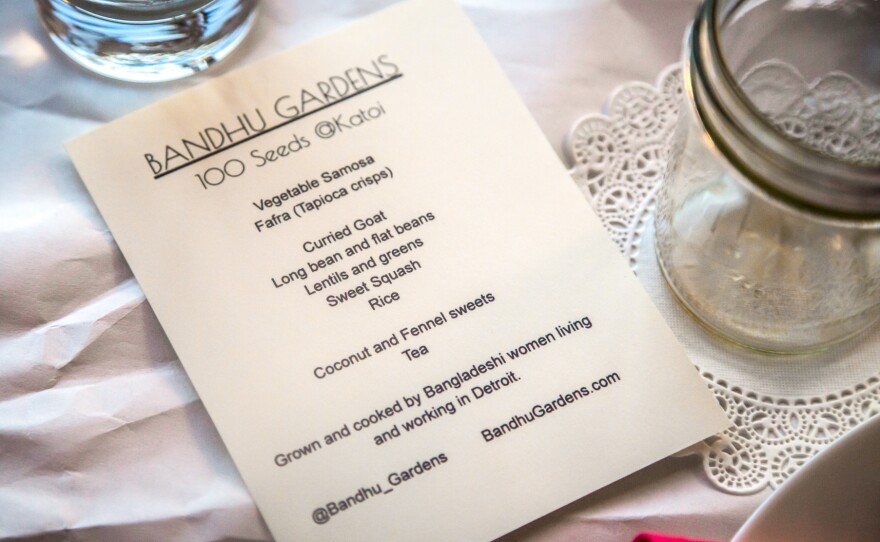 BANDHU GARDENS
100 Seeds @Katoi
Vegetable Samosa
Fafra (Tapioca crisps)
Curried Goat
Long bean and flat beans
Lentils and greens
Sweet Squash
Rice
Coconut and Fennel sweets
Tea
Grown and cooked by Bangladeshi women living
and working in Detroit.
@Bandhu_Gardens BandhuGardens.com